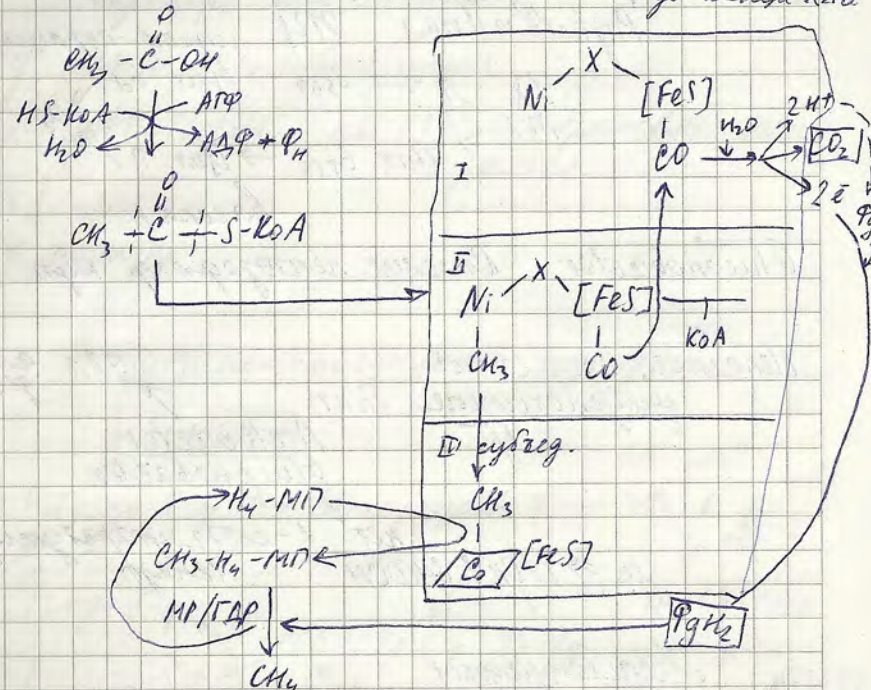 O
CH₃-C-OH
HS-KoA АТФ
H₂O АДФ + Фн
O
CH₃-C-S-KoA
X
Ni [FeS]
CO H₂O 2H+
CO₂
2ē
I
II X
Ni [FeS]
CH₃ CO KoA
III субъед.
CH₃
Co [FeS]
H₄-МП
CH₃-H₄-МП
МР/ГДР
ФgH₂
CH₄